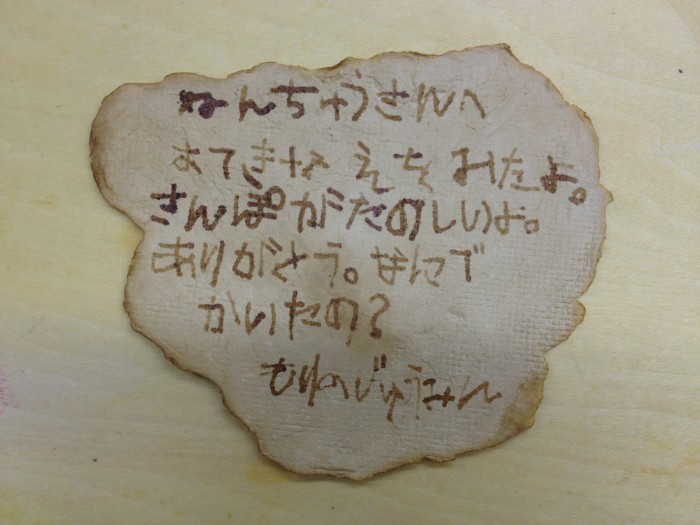 ねんちゅうさんへ
すてきな えを みたよ。
さんぽ がたのしいよ。
ありがとう。なんで
かいたの?
もりのじゅうみん